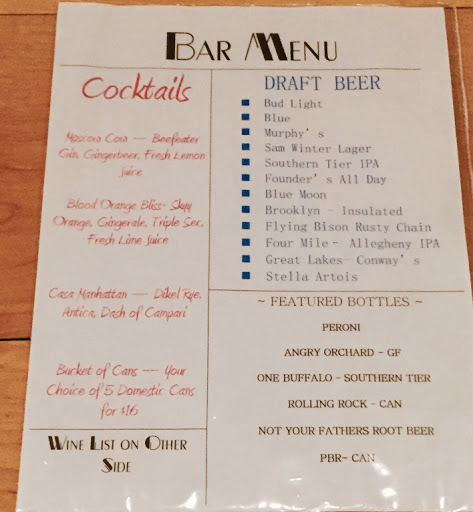 BAR MENU
Cocktails
Moscow Cow — Beefeater
Gin, Gingerbeer, Fresh Lemon
Juice
Blood Orange Bliss- Skyy
Orange, Gingerale, Triple Sec,
Fresh Lime Juice
Casa Manhattan — Dikel Rye,
Antica, Dash of Campari
Bucket of Cans — Your
Choice of 5 Domestic Cans
for $16
WINE LIST ON OTHER
SIDE
DRAFT BEER
Bud Light
Blue
Murphy's
Sam Winter Lager
Southern Tier IPA
Founder's All Day
Blue Moon
Brooklyn - Insulated
Flying Bison Rusty Chain
Four Mile - Allegheny IPA
Great Lakes- Conway's
Stella Artois
~ FEATURED BOTTLES ~
PERONI
ANGRY ORCHARD - GF
ONE BUFFALO - SOUTHERN TIER
ROLLING ROCK - CAN
NOT YOUR FATHERS ROOT BEER
PBR- CAN